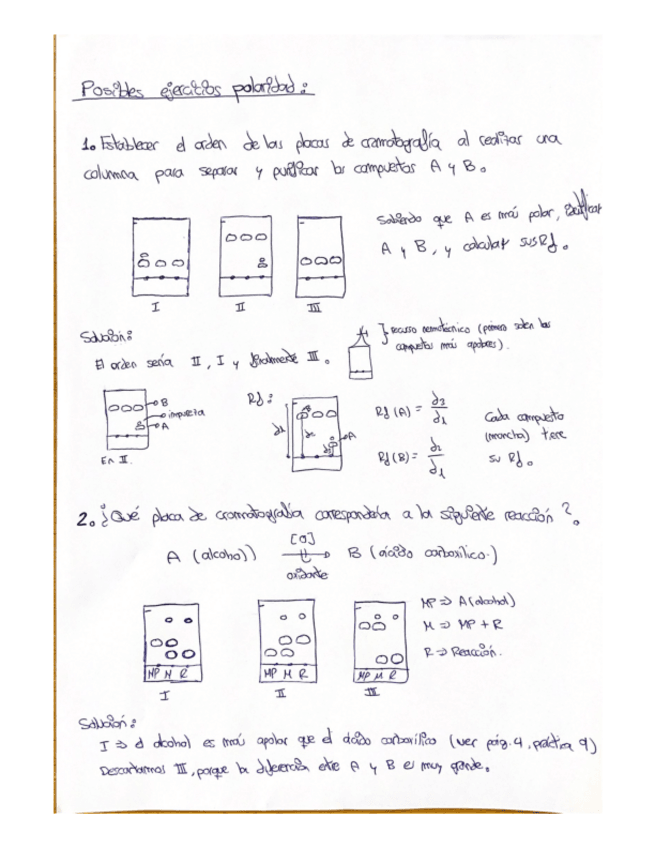 Posibles ejercicios polaridad:
1. Establecer el orden de las placas de cromatografía al realizar una
columna para separar y purificar los compuestos A y B.
Sabiendo que A es más polar, identificar
A y B, y calcular sus Rf.
I II III
Solución:
El orden sería II, I y finalmente III.
recurso nemotécnico (primero salen los
compuestos más apolares).
B
impureza
A
En II.
Rf:
d1
d2
d3
A
Rf (A) = d3/d1
Rf (B) = d2/d1
Cada compuesto
(mancha) tiene
su Rf.
2. ¿Qué placa de cromatografía correspondería a la siguiente reacción?
A (alcohol) [O] oxidante B (ácido carboxílico)
MP M R
MP M R
MP M R
I II III
MP ⇒ A (alcohol)
M ⇒ MP + R
R ⇒ Reacción.
Solución:
I ⇒ el alcohol es más apolar que el ácido carboxílico (ver pág. 4, práctica 9)
Descartamos III, porque la diferencia entre A y B es muy grande.